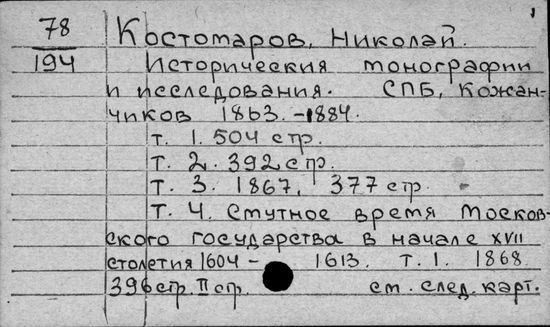 78
194
Костомаров, Николай.
Исторические монографии
и исследования. СПБ, Кожан-
чиков 1863.-1884.
т. 1. 504 стр.
т. 2. 392 стр.
т. 3. 1867. 377 стр.
т. 4. Смутное время Москов-
ского государства в начале XVII
столетия 1604 - 1613. т. 1. 1868.
396 стр. II стр. см. след. карт.